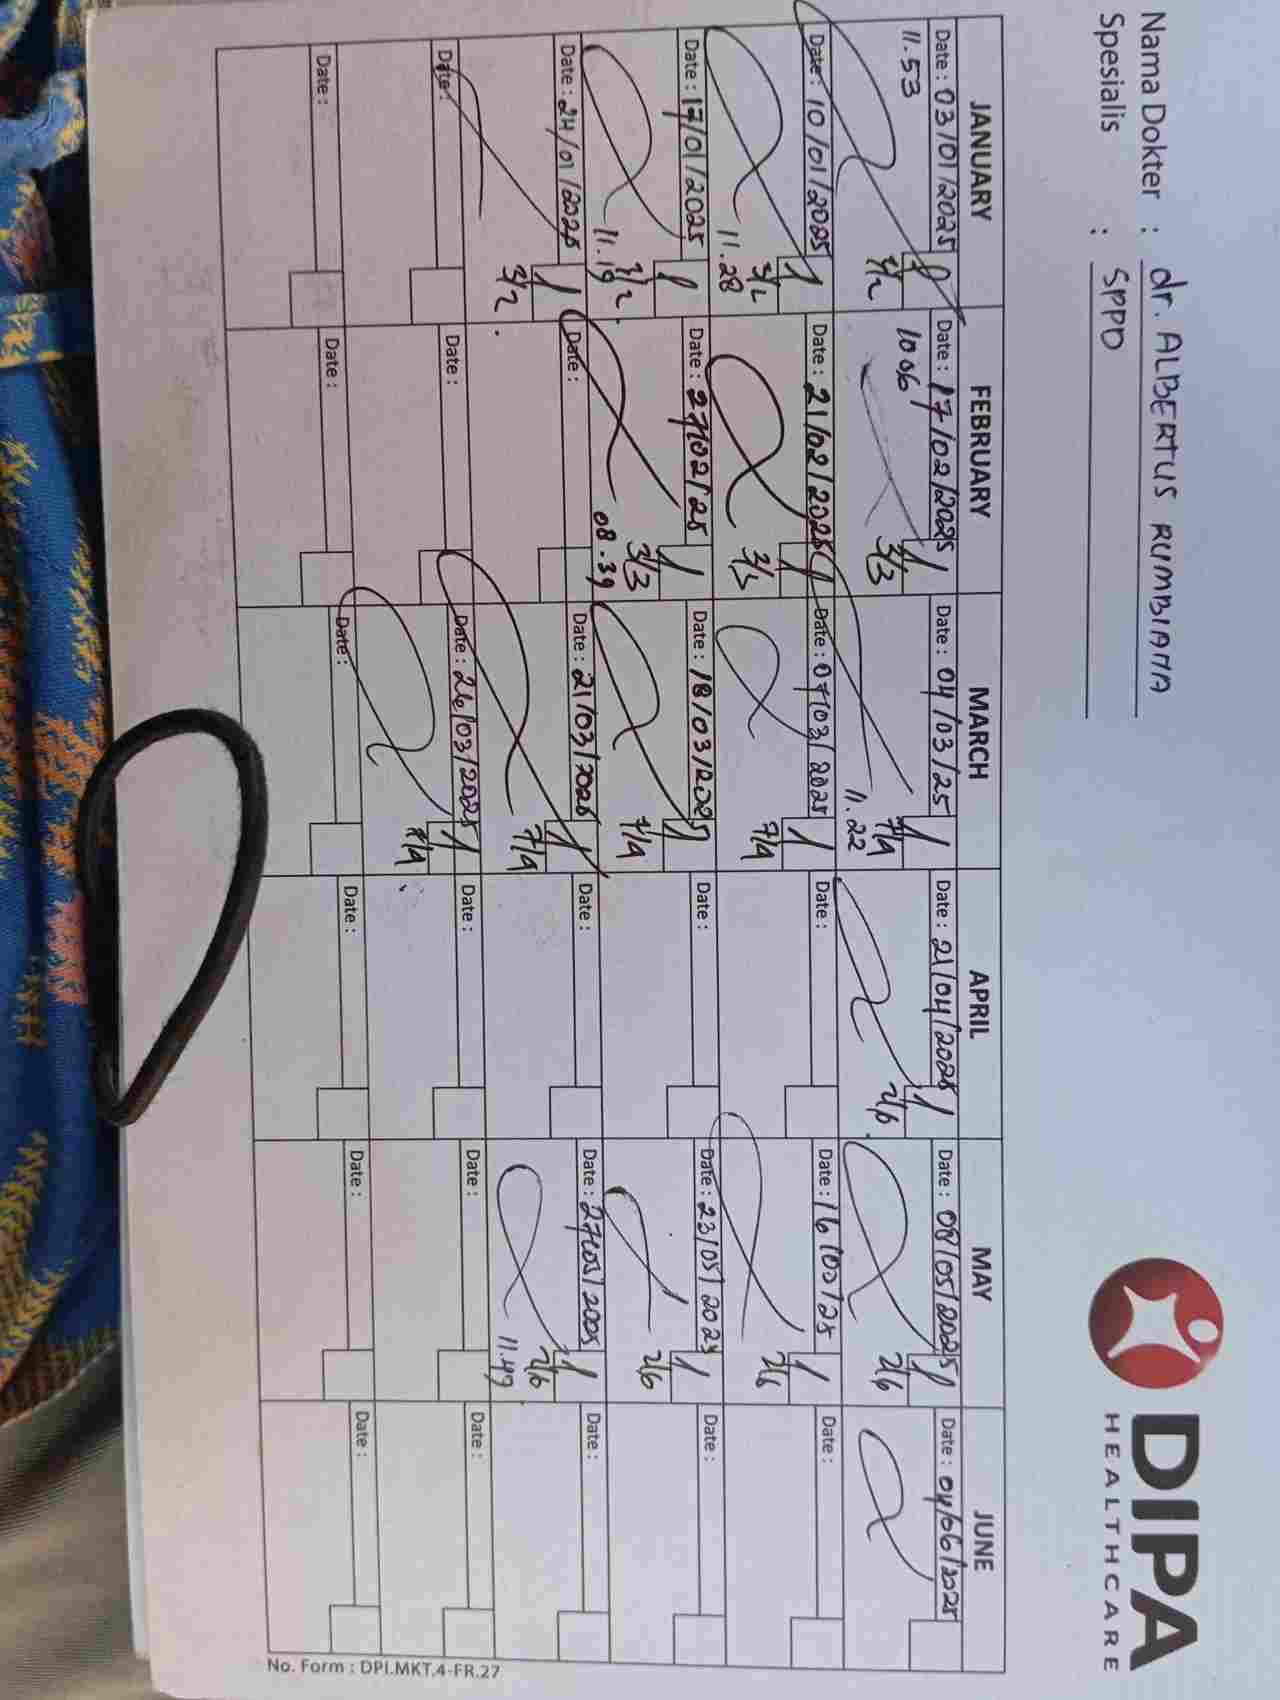 Nama Dokter : dr. ALBERTUS RUMBIANA
Spesialis : SPPD
DIPA
HEALTHCARE
JANUARY FEBRUARY MARCH APRIL MAY JUNE
Date : 03/01/2025 Date : 17/02/2025 Date : 04/03/25 Date : 21/04/2025 Date : 08/05/2025 Date : 04/06/2025
11.53 3/2 1006 3/3 7/4 11.22 2/6 2/6
Date : 10/01/2025 Date : 21/02/2025 Date : 07/03/2025 Date : Date : 16/05/25 Date :
3/2 11.28 3/3 7/4 2/6
Date : 17/01/2025 Date : 27/02/25 Date : 18/03/2025 Date : Date : 23/05/2025 Date :
3/2 11.19 3/3 08.39 7/4 2/6
Date : 24/01/2025 Date : Date : 21/03/2025 Date : Date : 27/05/2025 Date :
3/2 7/4 2/6 11.49
Date : Date : Date : 26/03/2025 Date : Date : Date :
7/4
Date : Date : Date : Date : Date : Date :
No. Form : DPI.MKT.4-FR.27